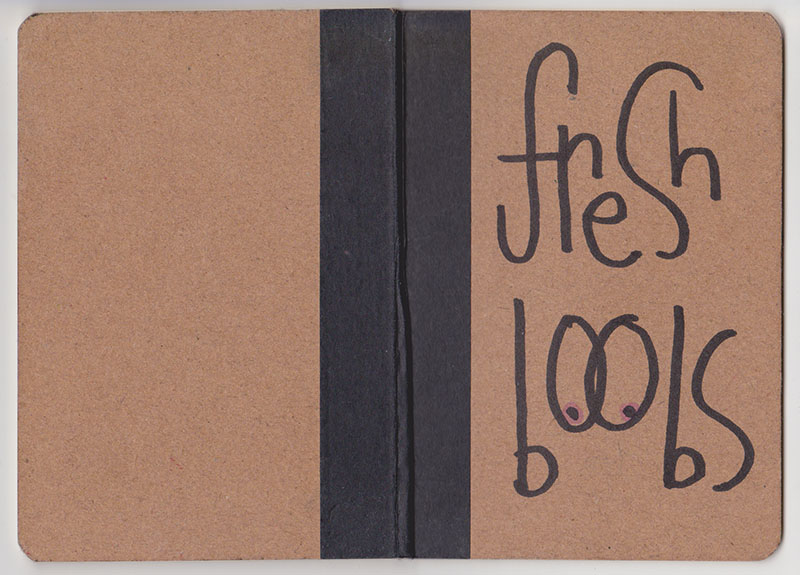 fresh
boobs